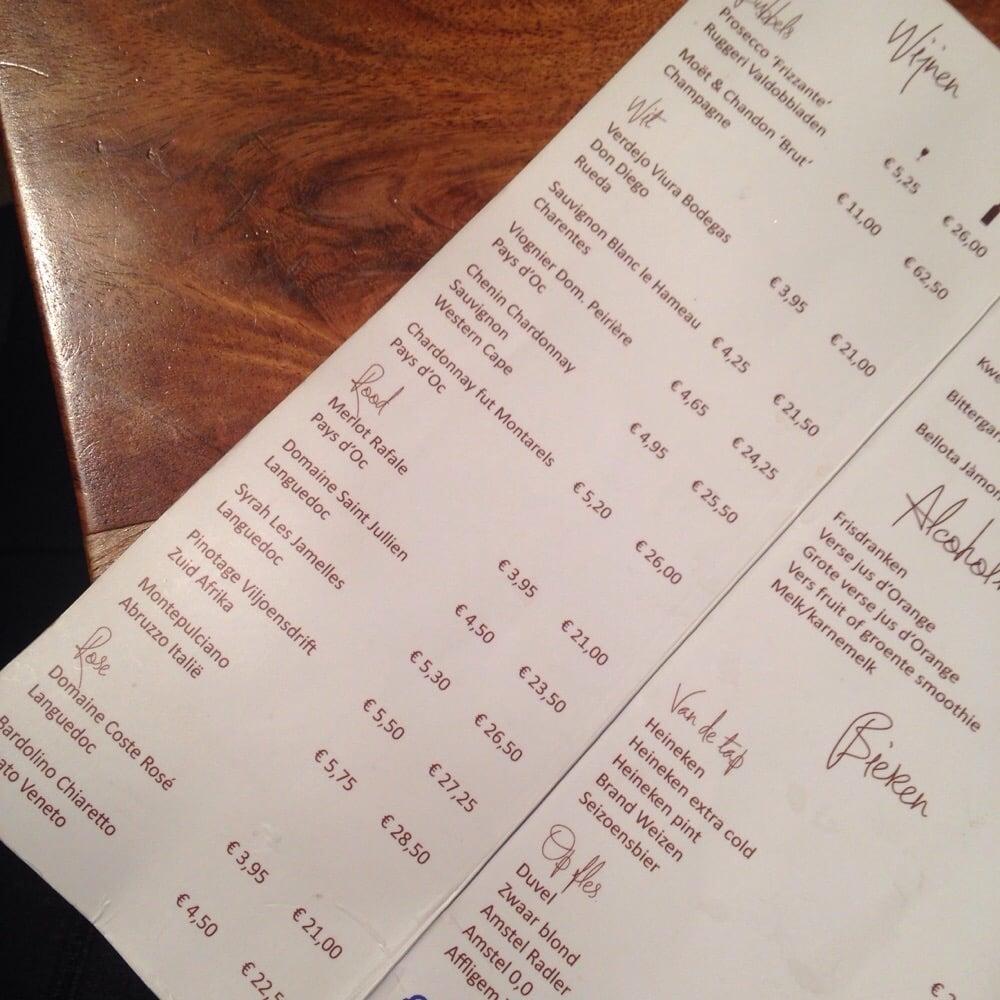 Wijnen
Bubbels
Prosecco 'Frizzante' € 5,25 € 26,00
Ruggeri Valdobbiaden
Moët & Chandon 'Brut' € 11,00 € 62,50
Champagne
Wit
Verdejo Viura Bodegas € 3,95 € 21,00
Don Diego
Rueda
Sauvignon Blanc le Hameau € 4,25 € 21,50
Charentes
Viognier Dom. Peirière € 4,65 € 24,25
Pays d'Oc
Chenin Chardonnay € 4,95 € 25,50
Sauvignon
Western Cape
Chardonnay fut Montarels € 5,20 € 26,00
Pays d'Oc
Rood
Merlot Rafale € 3,95 € 21,00
Pays d'Oc
Domaine Saint Jullien € 4,50 € 23,50
Languedoc
Syrah Les Jamelles € 5,30 € 26,50
Languedoc
Pinotage Viljoensdrift € 5,50 € 27,25
Zuid Afrika
Montepulciano € 5,75 € 28,50
Abruzzo Italië
Rose
Domaine Coste Rosé € 3,95 € 21,00
Languedoc
Bardolino Chiaretto € 4,50 € 22,5
Veneto
Bellota
Frisdranken
Verse jus d'Orange
Grote verse jus d'Orange
Vers fruit of groente smoothie
Melk/karnemelk
Bieren
Van de tap
Heineken
Heineken extra cold
Heineken pint
Brand Weizen
Seizoensbier
Op fles
Duvel
Zwaar blond
Amstel Radler
Amstel 0,0
Affligem